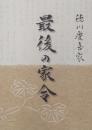 徳川慶喜家
最後の家令